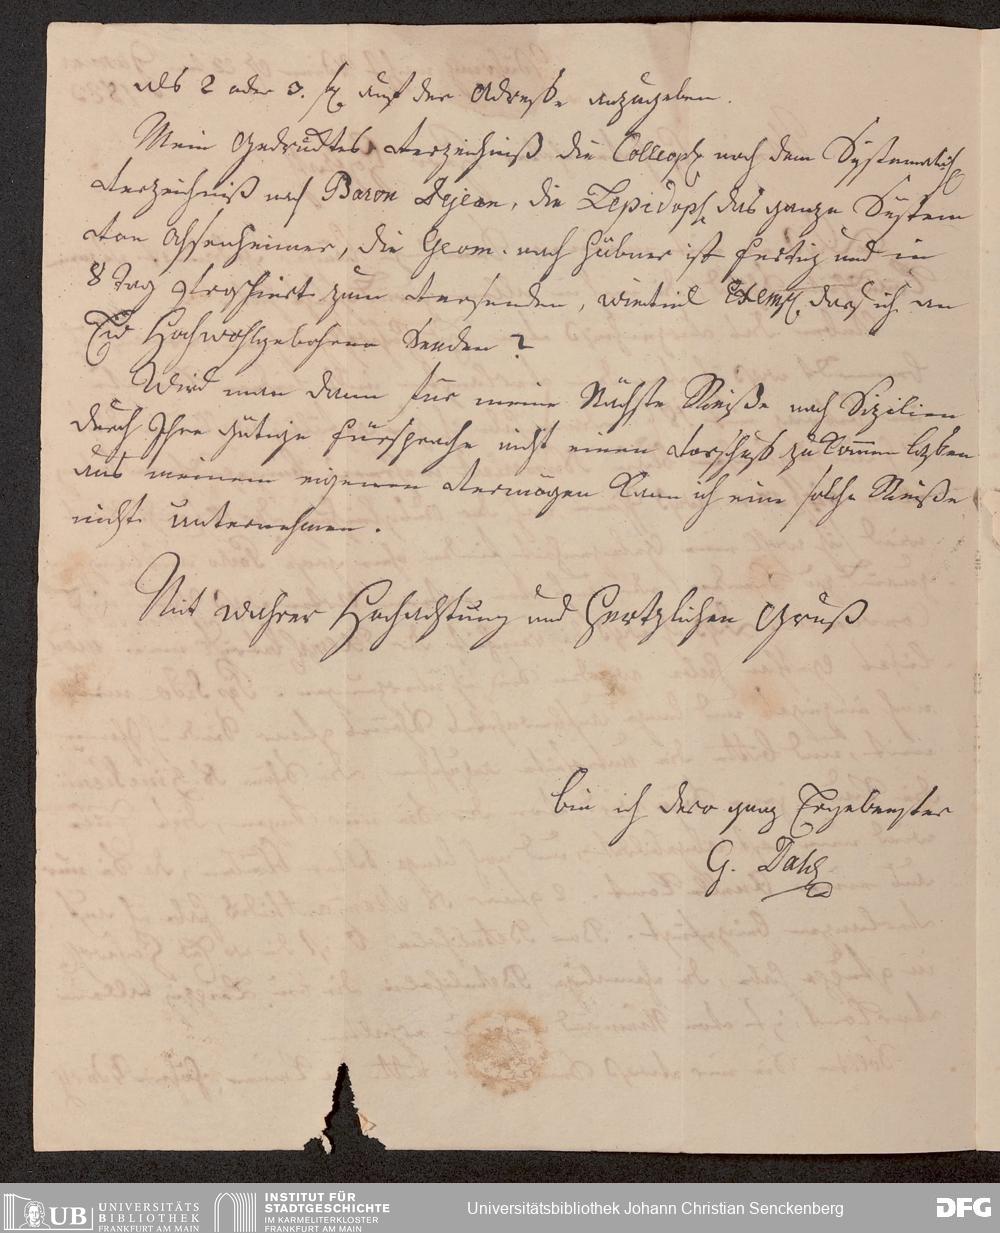 als 2 oder 3. fl. auf der Adresse anzugeben.
Mein Gedrucktes Verzeichniß die Colleopt. nach dem Systematisch
Verzeichniß nach Baron Dejean, die Lepidopt. das ganze System
von Ochsenheimer, die Geom. nach Hübner ist fertig und in
8 Tag broschiert zum versenden, wieviel Exempl. darf ich an
Eur Hochwohlgebohren senden?
Wird man dann für meine Nächste Reiße nach Sizilien
durch Ihre gütige fürsprache nicht einen Vorschuß zukommen laßen
aus meinem eigenen Vermögen kann ich eine solche Reiße
nicht unternehmen.
Mit wahrer Hochachtung und Hertzlichen Gruß
bin ich dero ganz Ergebenster
G. Dahl
UB UNIVERSITÄTS
BIBLIOTHEK
FRANKFURT AM MAIN
INSTITUT FÜR
STADTGESCHICHTE
IM KARMELITERKLOSTER
FRANKFURT AM MAIN
Universitätsbibliothek Johann Christian Senckenberg
DFG